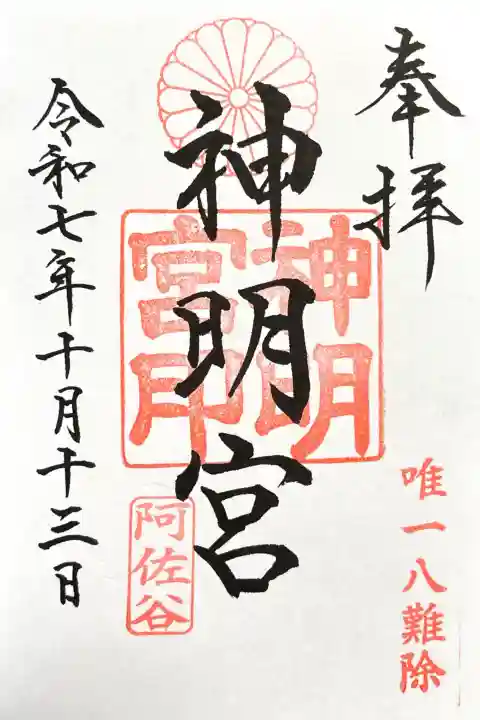 奉拝
唯一八難除
神明宮
神明宮印
阿佐谷
令和七年十月十三日